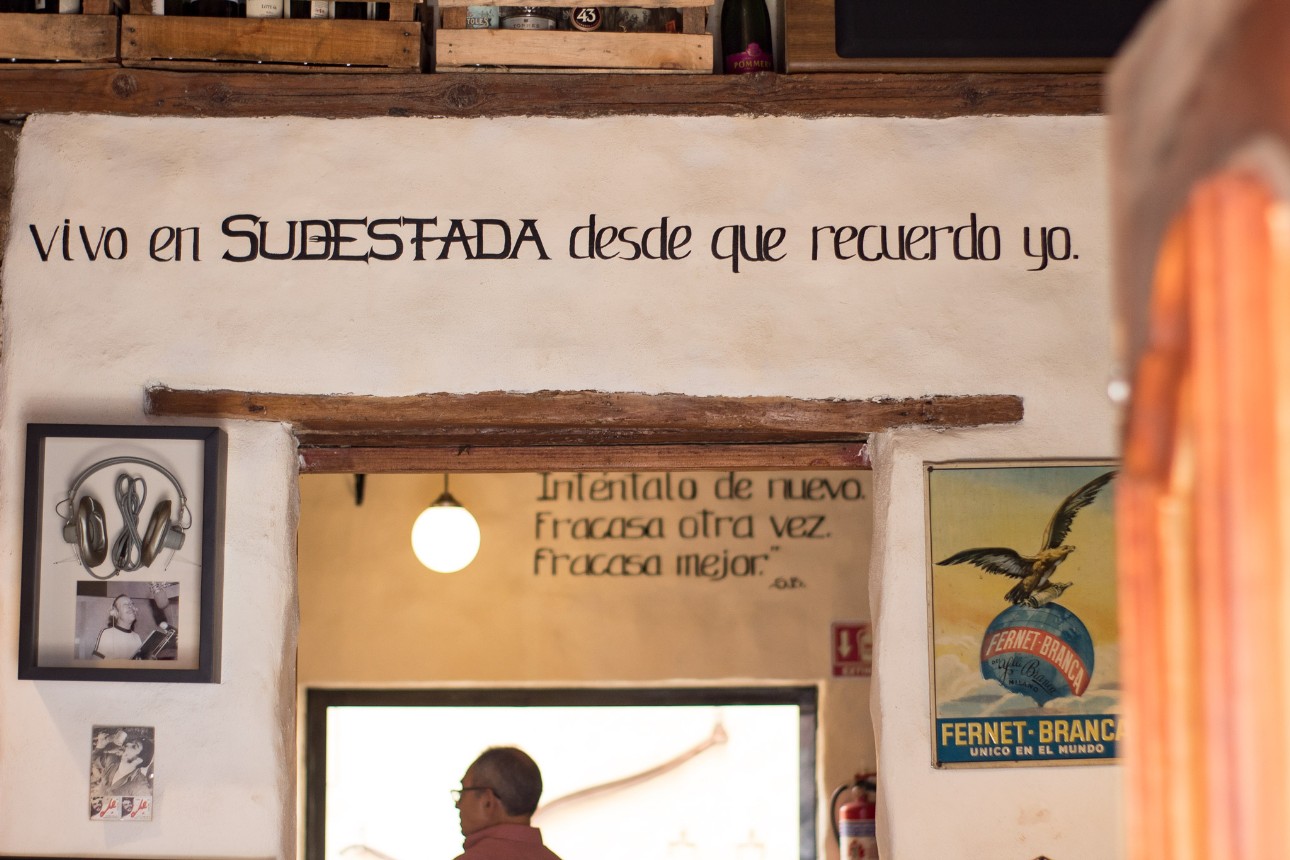 43
POMMERY
vivo en SUDESTADA desde que recuerdo yo.
Inténtalo de nuevo.
Fracasa otra vez.
Fracasa mejor."
FERNET-BRANCA
MILANO
FERNET-BRANCA
UNICO EN EL MUNDO